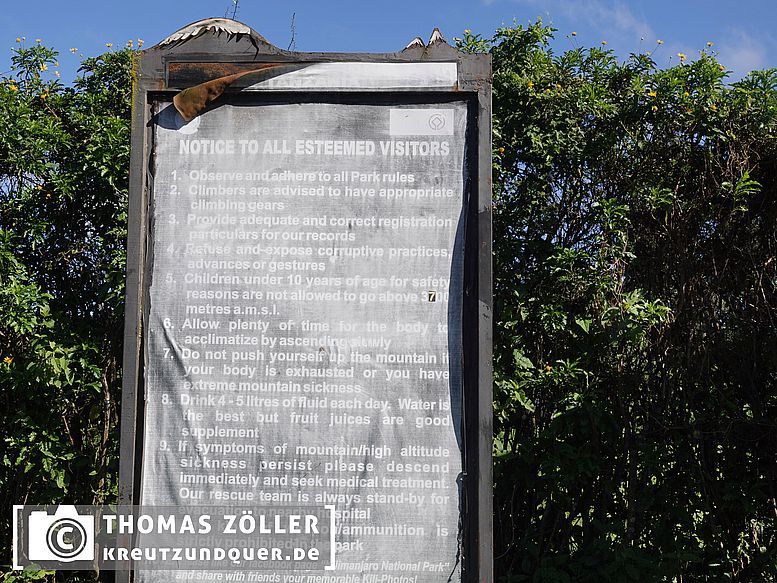 NOTICE TO ALL ESTEEMED VISITORS
1. Observe and adhere to all Park rules
2. Climbers are advised to have appropriate
climbing gears
3. Provide adequate and correct registration
particulars for our records
4. Refuse and expose corruptive practices,
advances or gestures
5. Children under 10 years of age for safety
reasons are not allowed to go above 3700
metres a.m.s.l.
6. Allow plenty of time for the body to
acclimatize by ascending slowly
7. Do not push yourself up the mountain if
your body is exhausted or you have
extreme mountain sickness
8. Drink 4 - 5 litres of fluid each day. Water is
the best but fruit juices are good
supplement
9. If symptoms of mountain/high altitude
sickness persist please descend
immediately and seek medical treatment.
Our rescue team is always stand-by for
/ammunition is
prohibited in the park
facebook page "Kilimanjaro National Park"
and share with friends your memorable Kili-Photos!
© THOMAS ZÖLLER
KREUTZUNDQUER.DE